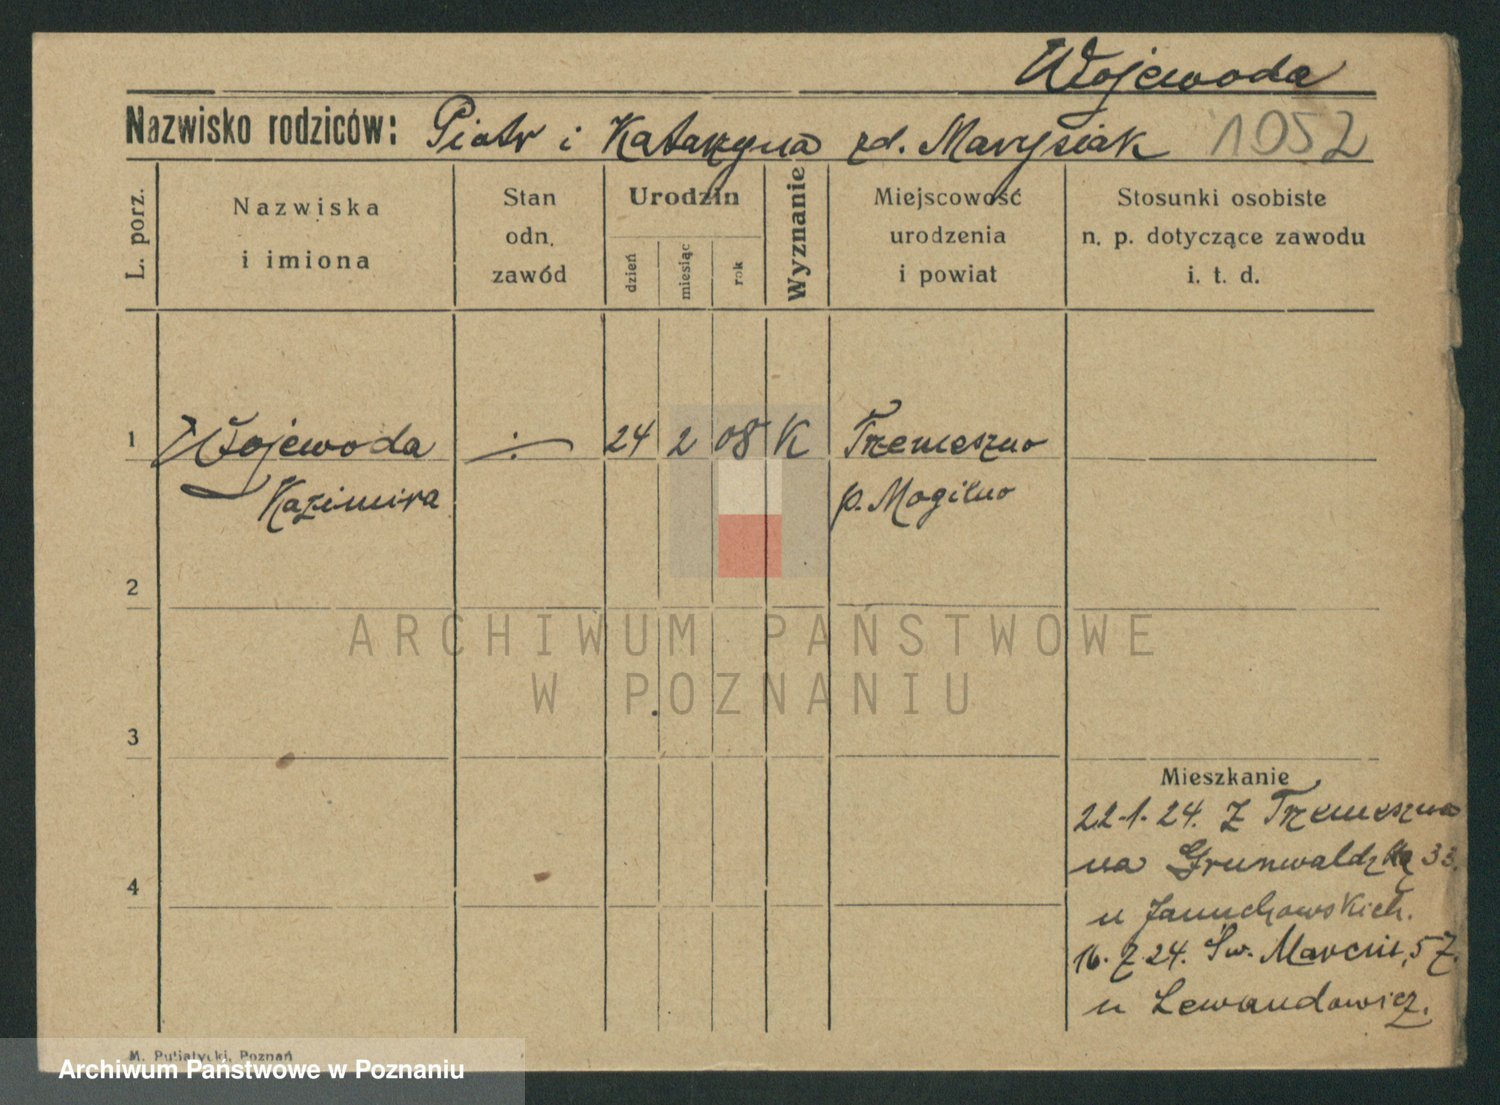 Wojewoda
Nazwisko rodziców: Piotr i Katarzyna zd. Marysiak 1052
L. porz.
Nazwiska
i imiona
Stan
odn.
zawód
Urodzin
dzień
miesiąc
rok
Wyznanie
Miejscowość
urodzenia
i powiat
Stosunki osobiste
n. p. dotyczące zawodu
i. t. d.
1 Wojewoda ÷ 24 2 08 K Trzemeszno
Kazimira p. Mogilno
2
ARCHIWUM PAŃSTWOWE
W POZNANIU
3
Mieszkanie
22-1-24. Z Trzemeszna
na Grunwaldzką 33.
4
u Januchowskich.
16. 7. 24. Św. Marcin, 57.
u Lewandowicz.
M. Putiatycki, Poznań
Archiwum Państwowe w Poznaniu